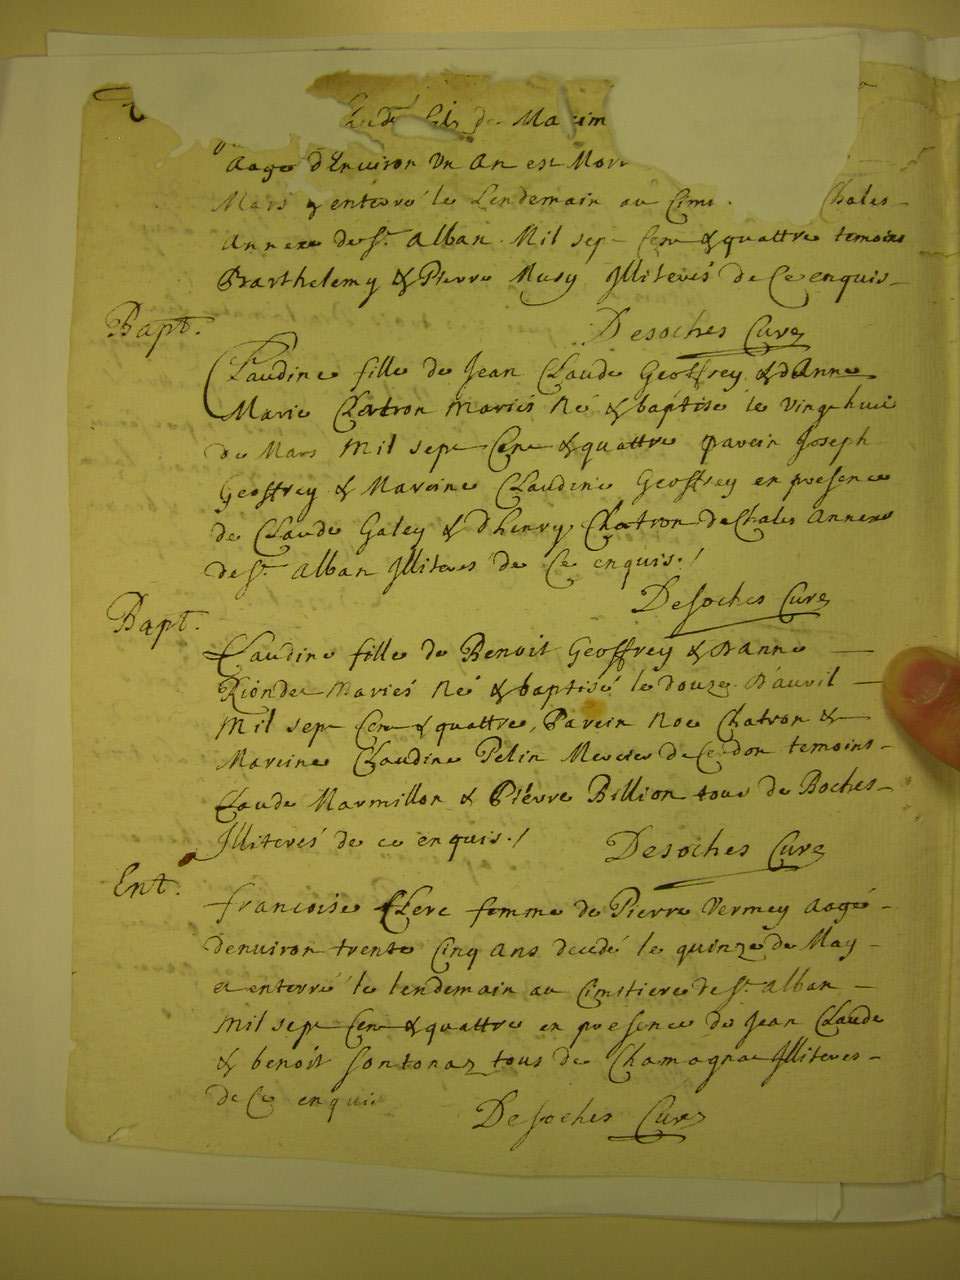 fils de Maxim
Aagé d'Environ Un An est Mort
Mars & enterré le Lendemain au Cimi Chales
Annexe de St. Alban Mil sept Cent & quattre temoins
Barthelemy & Pierre Musy Illiterés de Ce enquis
Desoches Curé
Bapt.
Claudine fille de Jean Claude Geoffrey & d'Anne
Marie Chatron Mariés Né & baptisé le vingt huit
de Mars Mil sept Cent & quattre parein Joseph
Geoffrey & Mareine Claudine Geoffrey en presence
de Claude Galey & d'henry Chatron de Chales Annexe
de St. Alban Illiterés de Ce enquis ./
Desoches Curé
Bapt.
Claudine fille de Benoit Geoffrey & D'anne
Rionde Mariés Né & baptisé le douze D'avril
Mil sept Cent & quattre, Parein Noe Chatron &
Mareine Claudine Pelin Mercier de Cerdon temoins
Claude Marmillon & Pierre Billion tous de Boches
Illiterés de ce enquis ./
Desoches Curé
Ent.
francoise Clerc femme de Pierre Vermey Aagé
denuiron trente Cinq Ans decedé le quinze de May
et enterré le lendemain au Cimitiere de St. Alban
Mil sept Cent & quattre en presence de Jean Claude
& benoit Sontonaz tous de Chamagnat Illiteres
de Ce enquis
Desoches Curé